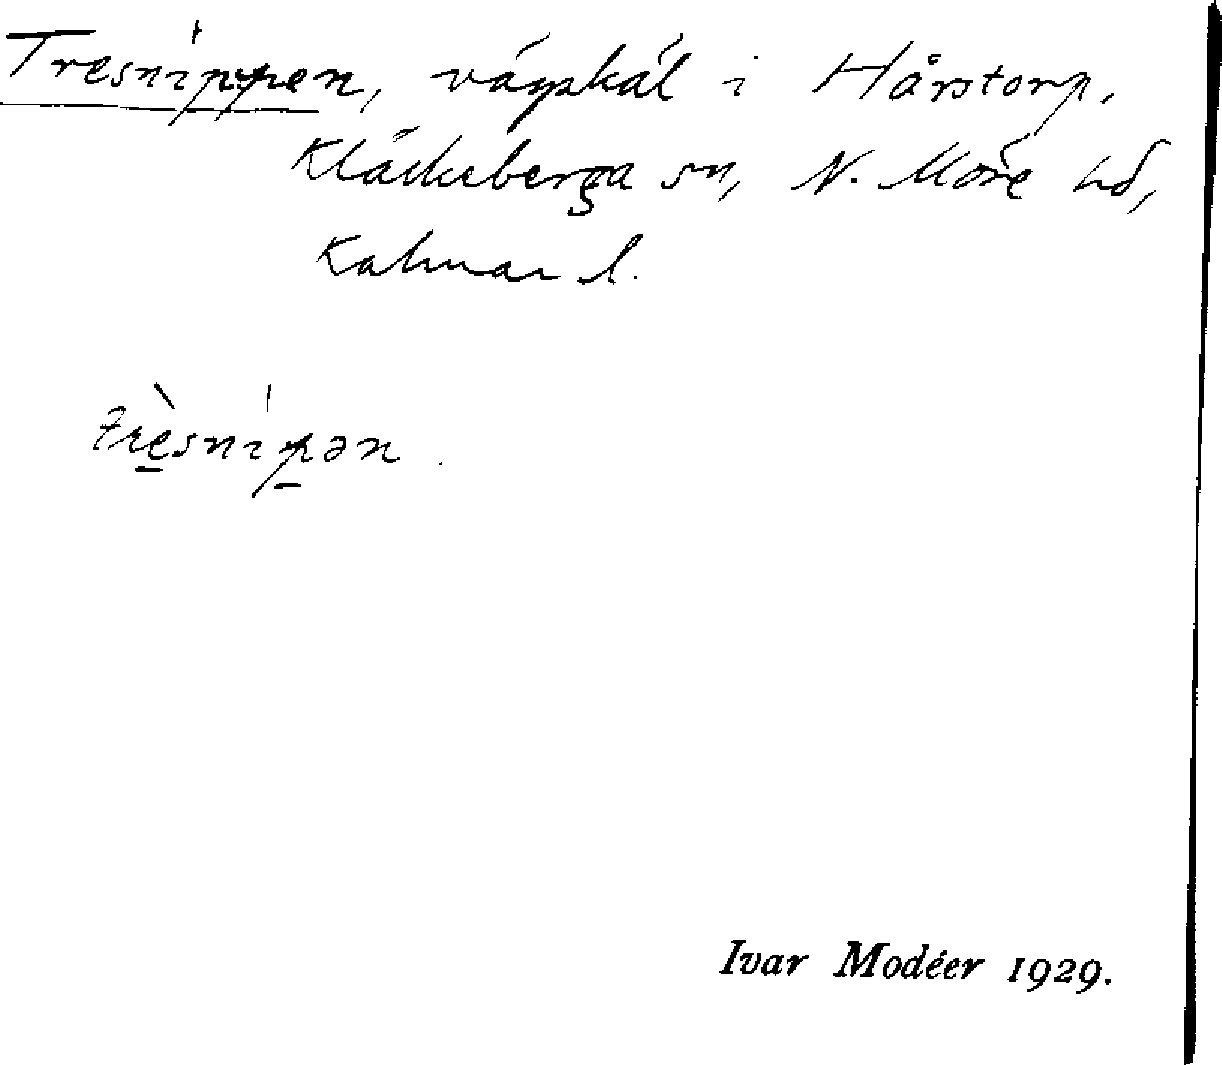 Tresnippen, vägskäl i Hårstorp,
Kläckeberga sn, N. Möre hd,
Kalmar l.
trèsnipən.
Ivar Modéer 1929.